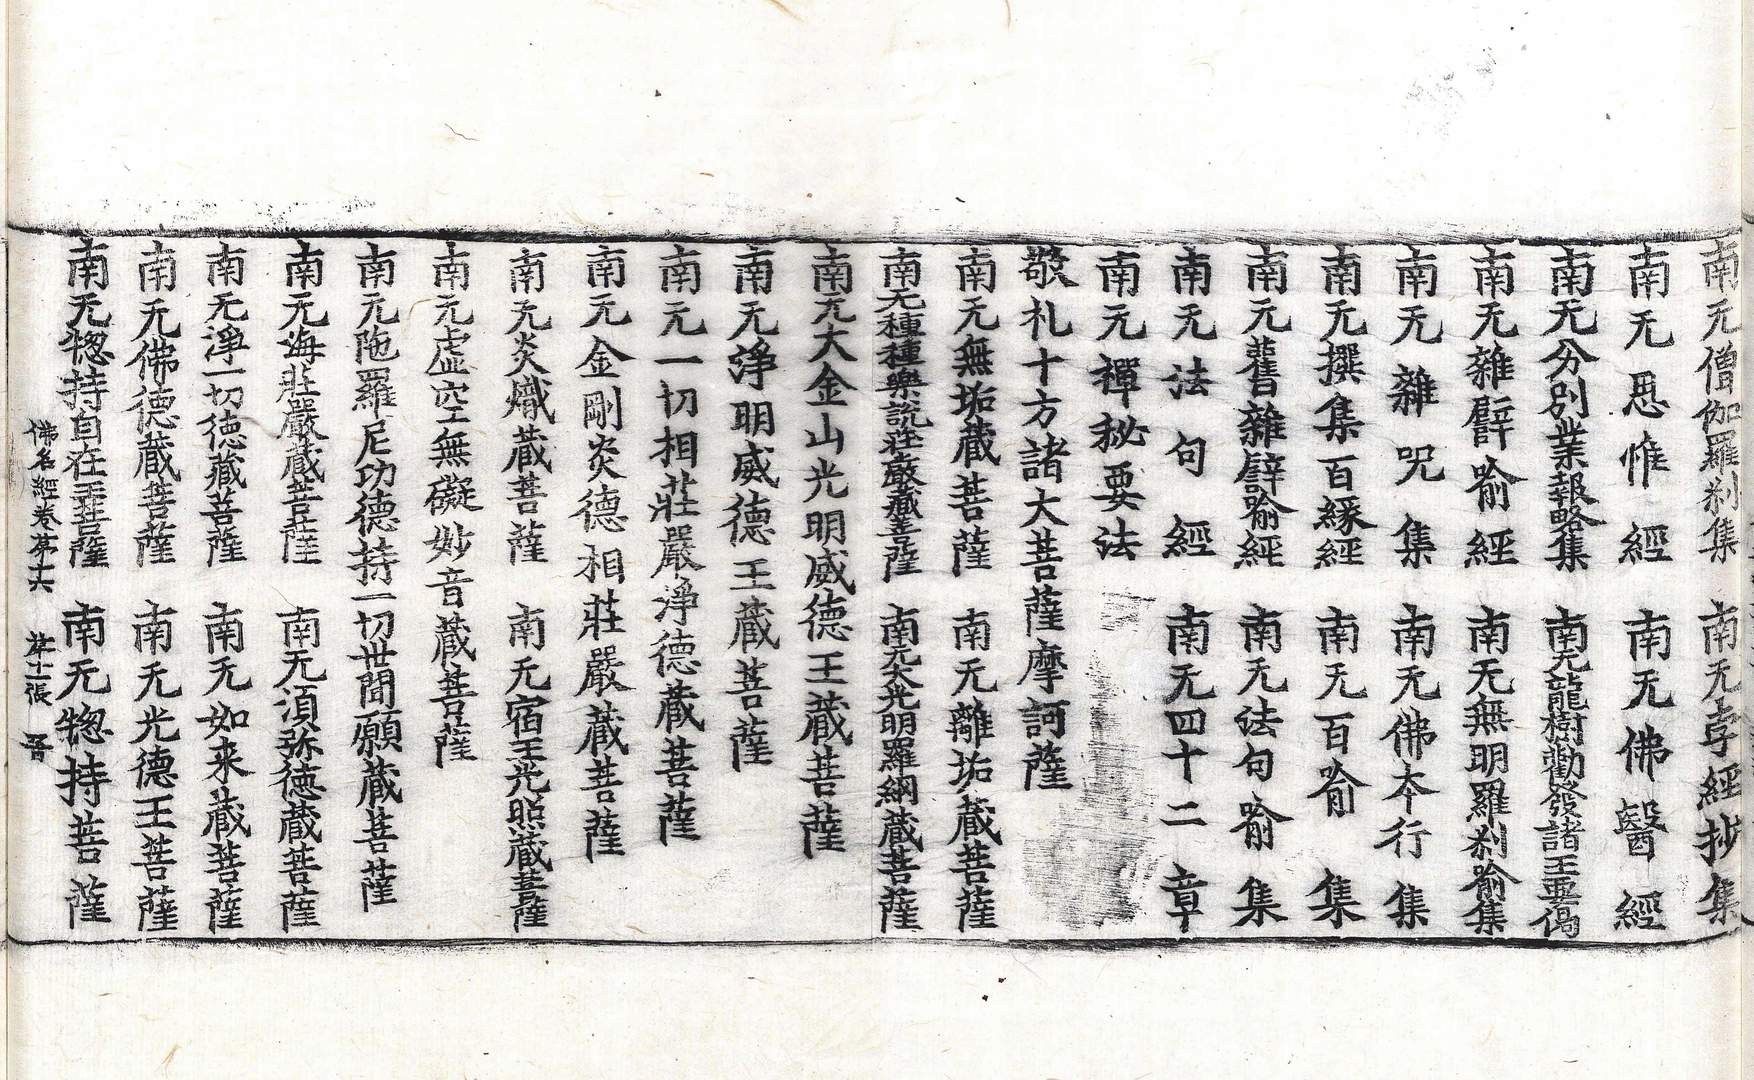 南无僧伽羅刹集　南无孛經抄集
南无思惟經　南无佛醫經
南无分別業報略集　南无龍樹勸發諸王要偈
南无雜譬喻經　南无無明羅刹喻集
南无雜呪集　南无佛夲行集
南无撰集百緣經　南无百喻集
南无舊雜譬喻經　南无法句喻集
南无法句經　南无四十二章
南无禪秘要法
敬札十方諸大菩薩摩訶薩
南无無垢藏菩薩　南无離垢藏菩薩
南无種種樂說莊嚴藏菩薩　南无大光明羅網藏菩薩
南无大金山光明威德王藏菩薩
南无淨明威德王藏菩薩
南无一切相莊嚴淨德藏菩薩
南无金剛炎德相莊嚴藏菩薩
南无炎熾藏菩薩　南无宿王光照藏菩薩
南无虛空無礙妙音藏菩薩
南无陁羅尼功德持一切世間願藏菩薩
南无海莊嚴藏菩薩　南无湏弥德藏菩薩
南无淨一切德藏菩薩　南无如来藏菩薩
南无佛德藏菩薩　南无光德王菩薩
南无惣持自在王菩薩　南无惣持菩薩
佛名經卷第十六　第十一張